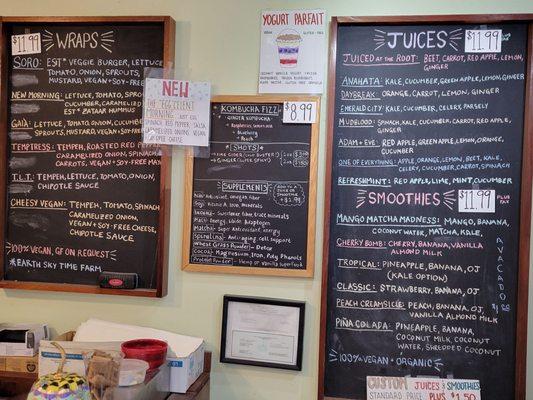 $11.99
WRAPS
SORO: EST* VEGGIE BURGER, LETTUCE
TOMATO, ONION, SPROUTS,
MUSTARD, VEGAN + SOY-FREE
NEW MORNING: LETTUCE, TOMATO, SPROUTS
CUCUMBER, CARAMELIZED
ONION + EST* ZA'ATAR HUMMUS
GAIA: TOMATO, ONION, CUCUMBER
SPROUTS, MUSTARD, VEGAN + SOY-FREE
TEMPTRESS: TEMPEH, ROASTED RED
CARAMELIZED ONION, SPINACH
VEGAN + SOY-FREE
T.L.T: TEMPEH, LETTUCE, TOMATO, ONION,
CHIPOTLE SAUCE
CHEESY VEGAN: TOMATO, TEMPEH, SPINACH,
CARAMELIZED ONION,
VEGAN + SOY-FREE CHEESE,
CHIPOTLE SAUCE
100% VEGAN, GF ON REQUEST
*EARTH SKY TIME FARM
NEW
THE "EGG"CELENT
MORNING
YOGURT PARFAIT
KOMBUCHA FIZZ
$8.99
+ GINGER KOMBUCHA
+ Blueberry
+ Peach
*SHOTS*
SUPPLEMENTS
ADD TO A
SMOOTHIE
+ $1.99
Spirulina - Anti-aging, cell support
Wheat Grass Powder - Detox
Cocoa: Magnesium, Iron, Poly Phenols
Protein Powder - Hemp or Vanilla Superfood
JUICES
$11.99
JUICED AT THE ROOT: BEET, CARROT, RED APPLE, LEMON
GINGER
ANAHATA: KALE, CUCUMBER, GREEN APPLE, LEMON, GINGER
DAYBREAK: ORANGE, CARROT, LEMON, GINGER
EMERALD CITY: KALE, CUCUMBER, CELERY, PARSELY
MUDBLOOD: SPINACH, KALE, CUCUMBER, CARROT, RED APPLE,
GINGER
ADAM + EVE: RED APPLE, GREEN APPLE, LEMON, ORANGE,
CUCUMBER
ONE OF EVERYTHING: APPLE, ORANGE, LEMON, BEET, KALE,
CELERY, CUCUMBER, CARROT, SPINACH
REFRESHMINT: RED APPLE, LIME, MINT, CUCUMBER
SMOOTHIES
$11.99
PLUS
TAX
MANGO MATCHA MADNESS: MANGO, BANANA,
COCONUT WATER, MATCHA, KALE,
CHERRY BOMB: CHERRY, BANANA, VANILLA
ALMOND MILK
TROPICAL: PINEAPPLE, BANANA, OJ
(KALE OPTION)
CLASSIC: STRAWBERRY, BANANA, OJ
PEACH CREAMSICLE: PEACH, BANANA, OJ
VANILLA ALMOND MILK
PIÑA COLADA: PINEAPPLE, BANANA,
COCONUT MILK, COCONUT
WATER, SHREDDED COCONUT
AVACADO
100% VEGAN + ORGANIC
CUSTOM JUICES SMOOTHIES
STANDARD PRICE PLUS $1.50